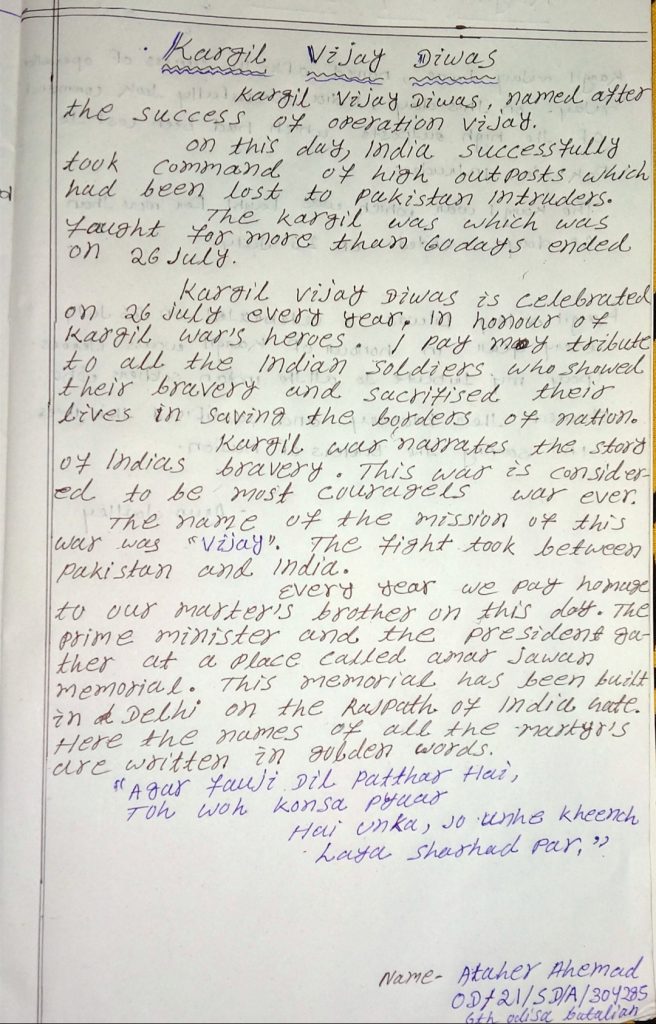 Kargil Vijay Diwas
Kargil Vijay Diwas, named after
the success of operation vijay.
on this day, India successfully
took command of high outposts which
had been lost to Pakistan intruders.
The kargil was which was
faught for more than 60days ended
on 26 July.
Kargil vijay Diwas is celebrated
on 26 july every year, in honour of
Kargil war's heroes. I pay my tribute
to all the Indian soldiers who showed
their bravery and sacrifised their
lives in saving the borders of nation.
Kargil war narrates the story
of Indias bravery. This war is consider-
ed to be most couragels war ever.
The name of the mission of this
war was "Vijay". The fight took between
pakistan and India.
Every year we pay homage
to our marter's brother on this day. The
prime minister and the president ga-
ther at a place called amar jawan
memorial. This memorial has been built
in Delhi on the Rajpath of India Gate.
Here the names of all the martyr's
are written in golden words.
"Agar fauji Dil Patthar Hai,
Toh woh konsa Pyaar
Hai unka, jo unhe kheench
Laya sharhad par,"
Name- Ataher Ahemad
OD/21/SD/A/304285
6th odisa batalian